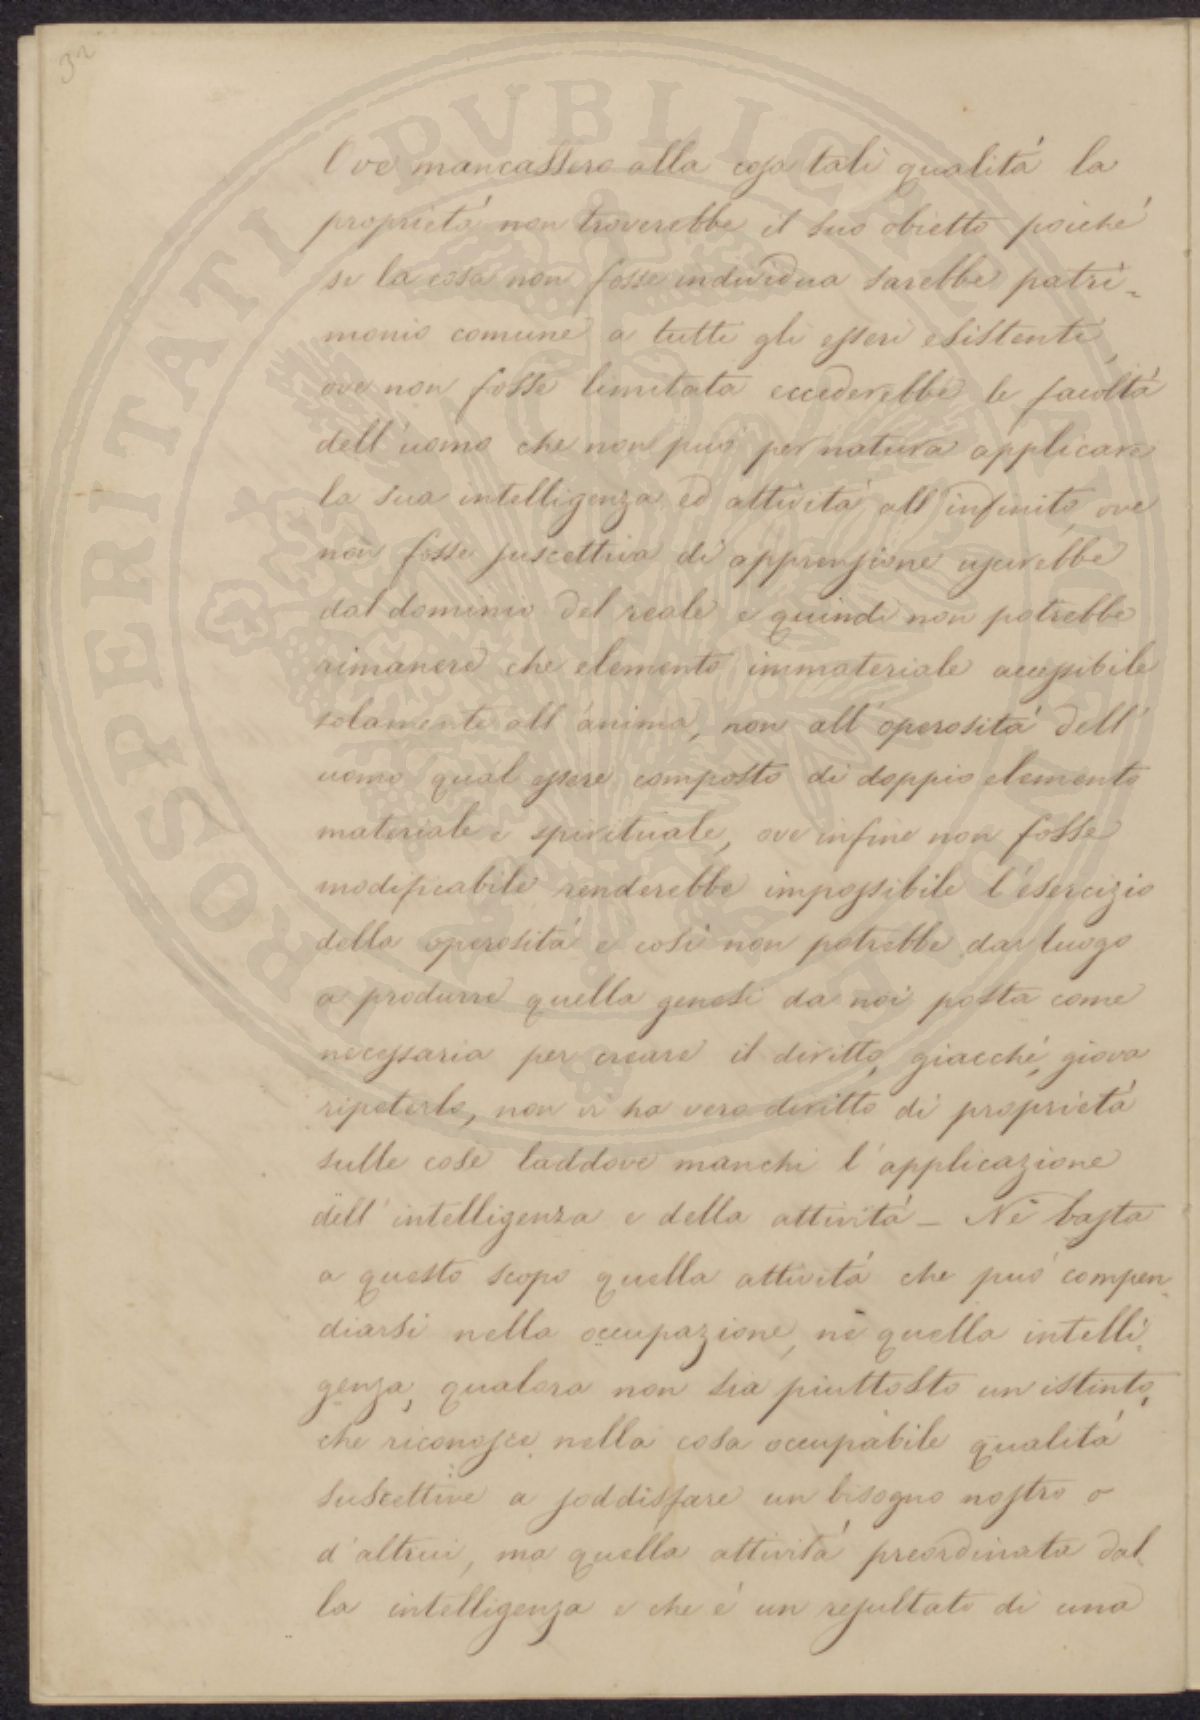 32
Ove mancassero alla cosa tali qualitá la
proprietá non troverebbe il suo obietto poiché
se la cosa non fosse individua sarebbe patri-
monio comune a tutti gli esseri esistenti,
ove non fosse limitata eccederebbe le facoltá
dell'uomo che non puó per natura applicare
la sua intelligenza ed attivitá all'infinito, ove
non fosse suscettiva di apprensione uscirebbe
dal dominio del reale e quindi non potrebbe
rimanere che elemento immateriale accessibile
solamente all'anima, non all'operositá dell'
uomo qual essere composto di doppio elemento
materiale e spirituale, ove infine non fosse
modificabile renderebbe impossibile l'esercizio
della operositá e cosí non potrebbe dar luogo
a produrre quella genesi da noi posta come
necessaria per creare il diritto, giacché, giova
ripeterlo, non vi ha vero diritto di proprietá
sulle cose laddove manchi l'applicazione
dell'intelligenza e della attivitá – Né basta
a questo scopo quella attivitá che puó compen-
diarsi nella occupazione, né quella intelli-
genza, qualora non sia piuttosto un istinto,
che riconosce nella cosa occupabile qualitá
suscettive a soddisfare un bisogno nostro o
d'altrui, ma quella attivitá preordinata dal-
la intelligenza e che é un resultato di una
PROSPERITATI PVBLICAE